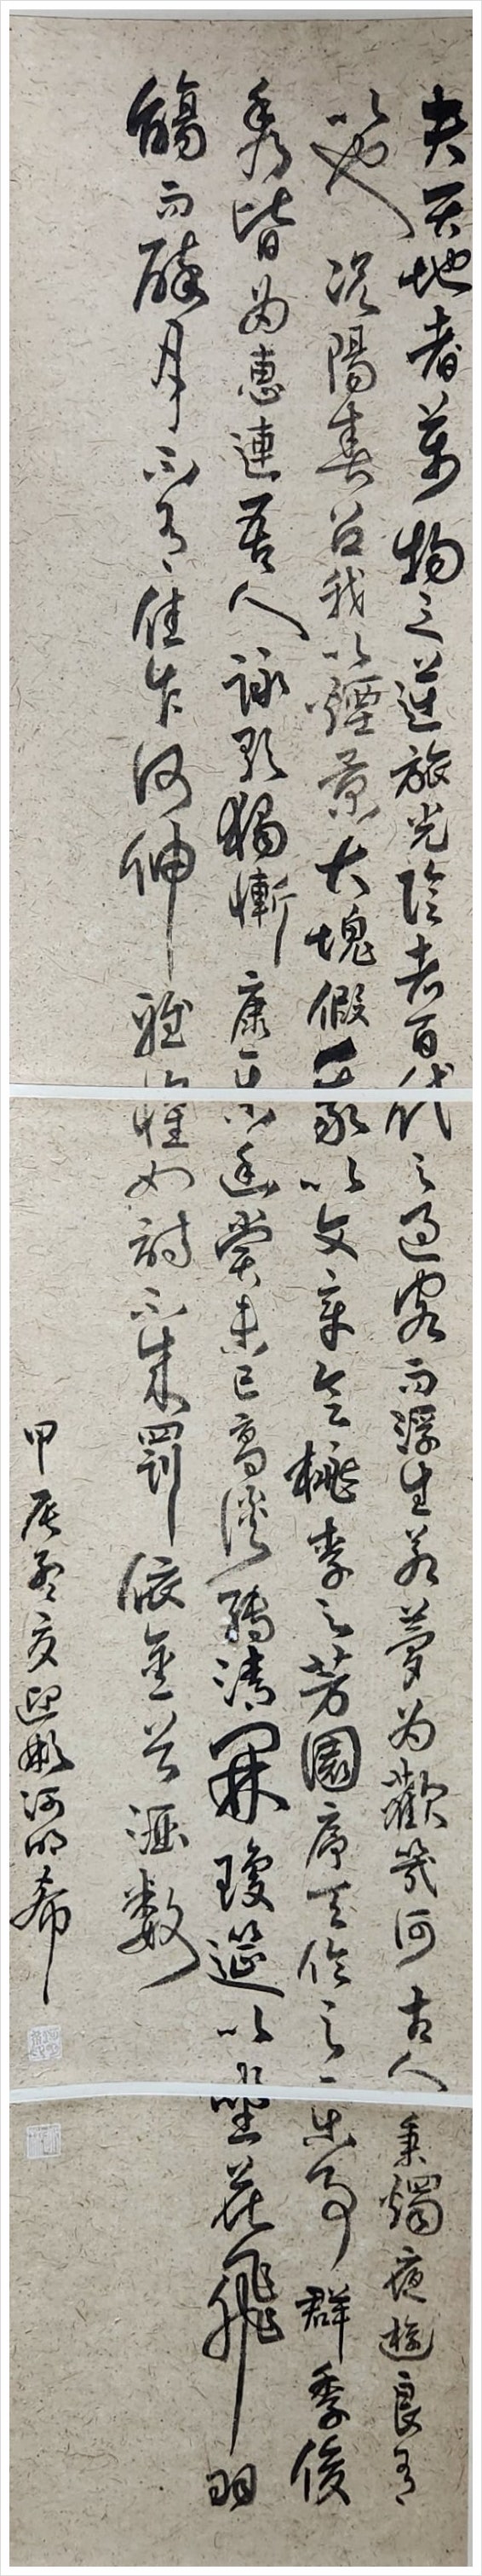 夫天地者萬物之逆旅光陰者百代之過客而浮生若夢为歡幾何古人秉燭夜遊良有
以也况陽春召我以煙景大塊假我以文章會桃李之芳園序天倫之樂事群季俊
秀皆为惠連吾人詠歌獨慚康樂幽賞未已高談轉清開瓊筵以坐花飛羽
觴而醉月不有佳作何伸雅懷如詩不成罰依金谷酒數
甲辰孟夏